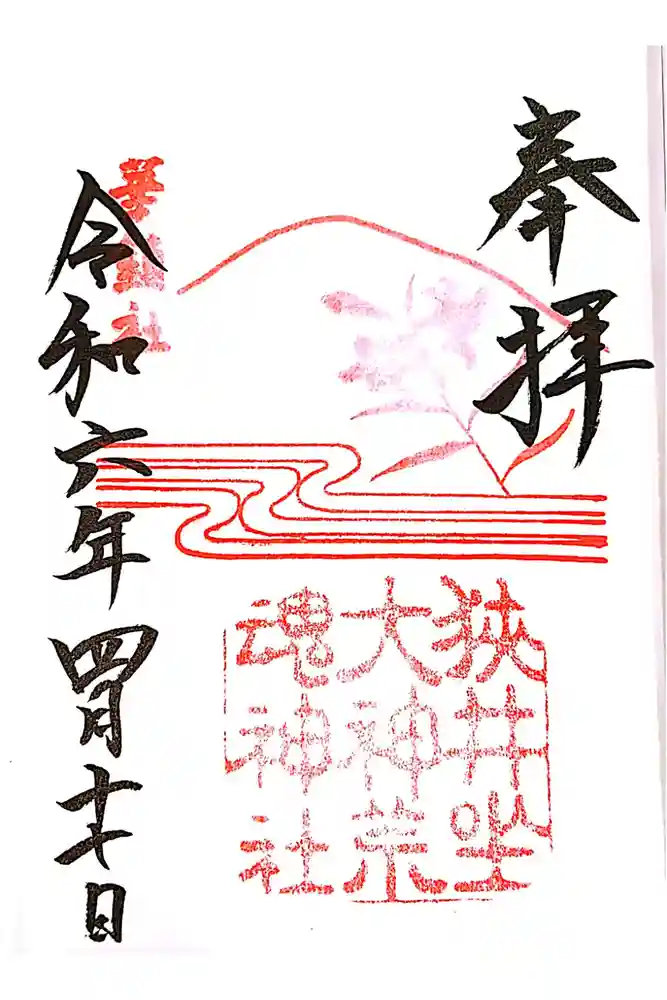 奉拝
狹井坐
大神荒
魂神社
華鎮社
令和六年四月十日